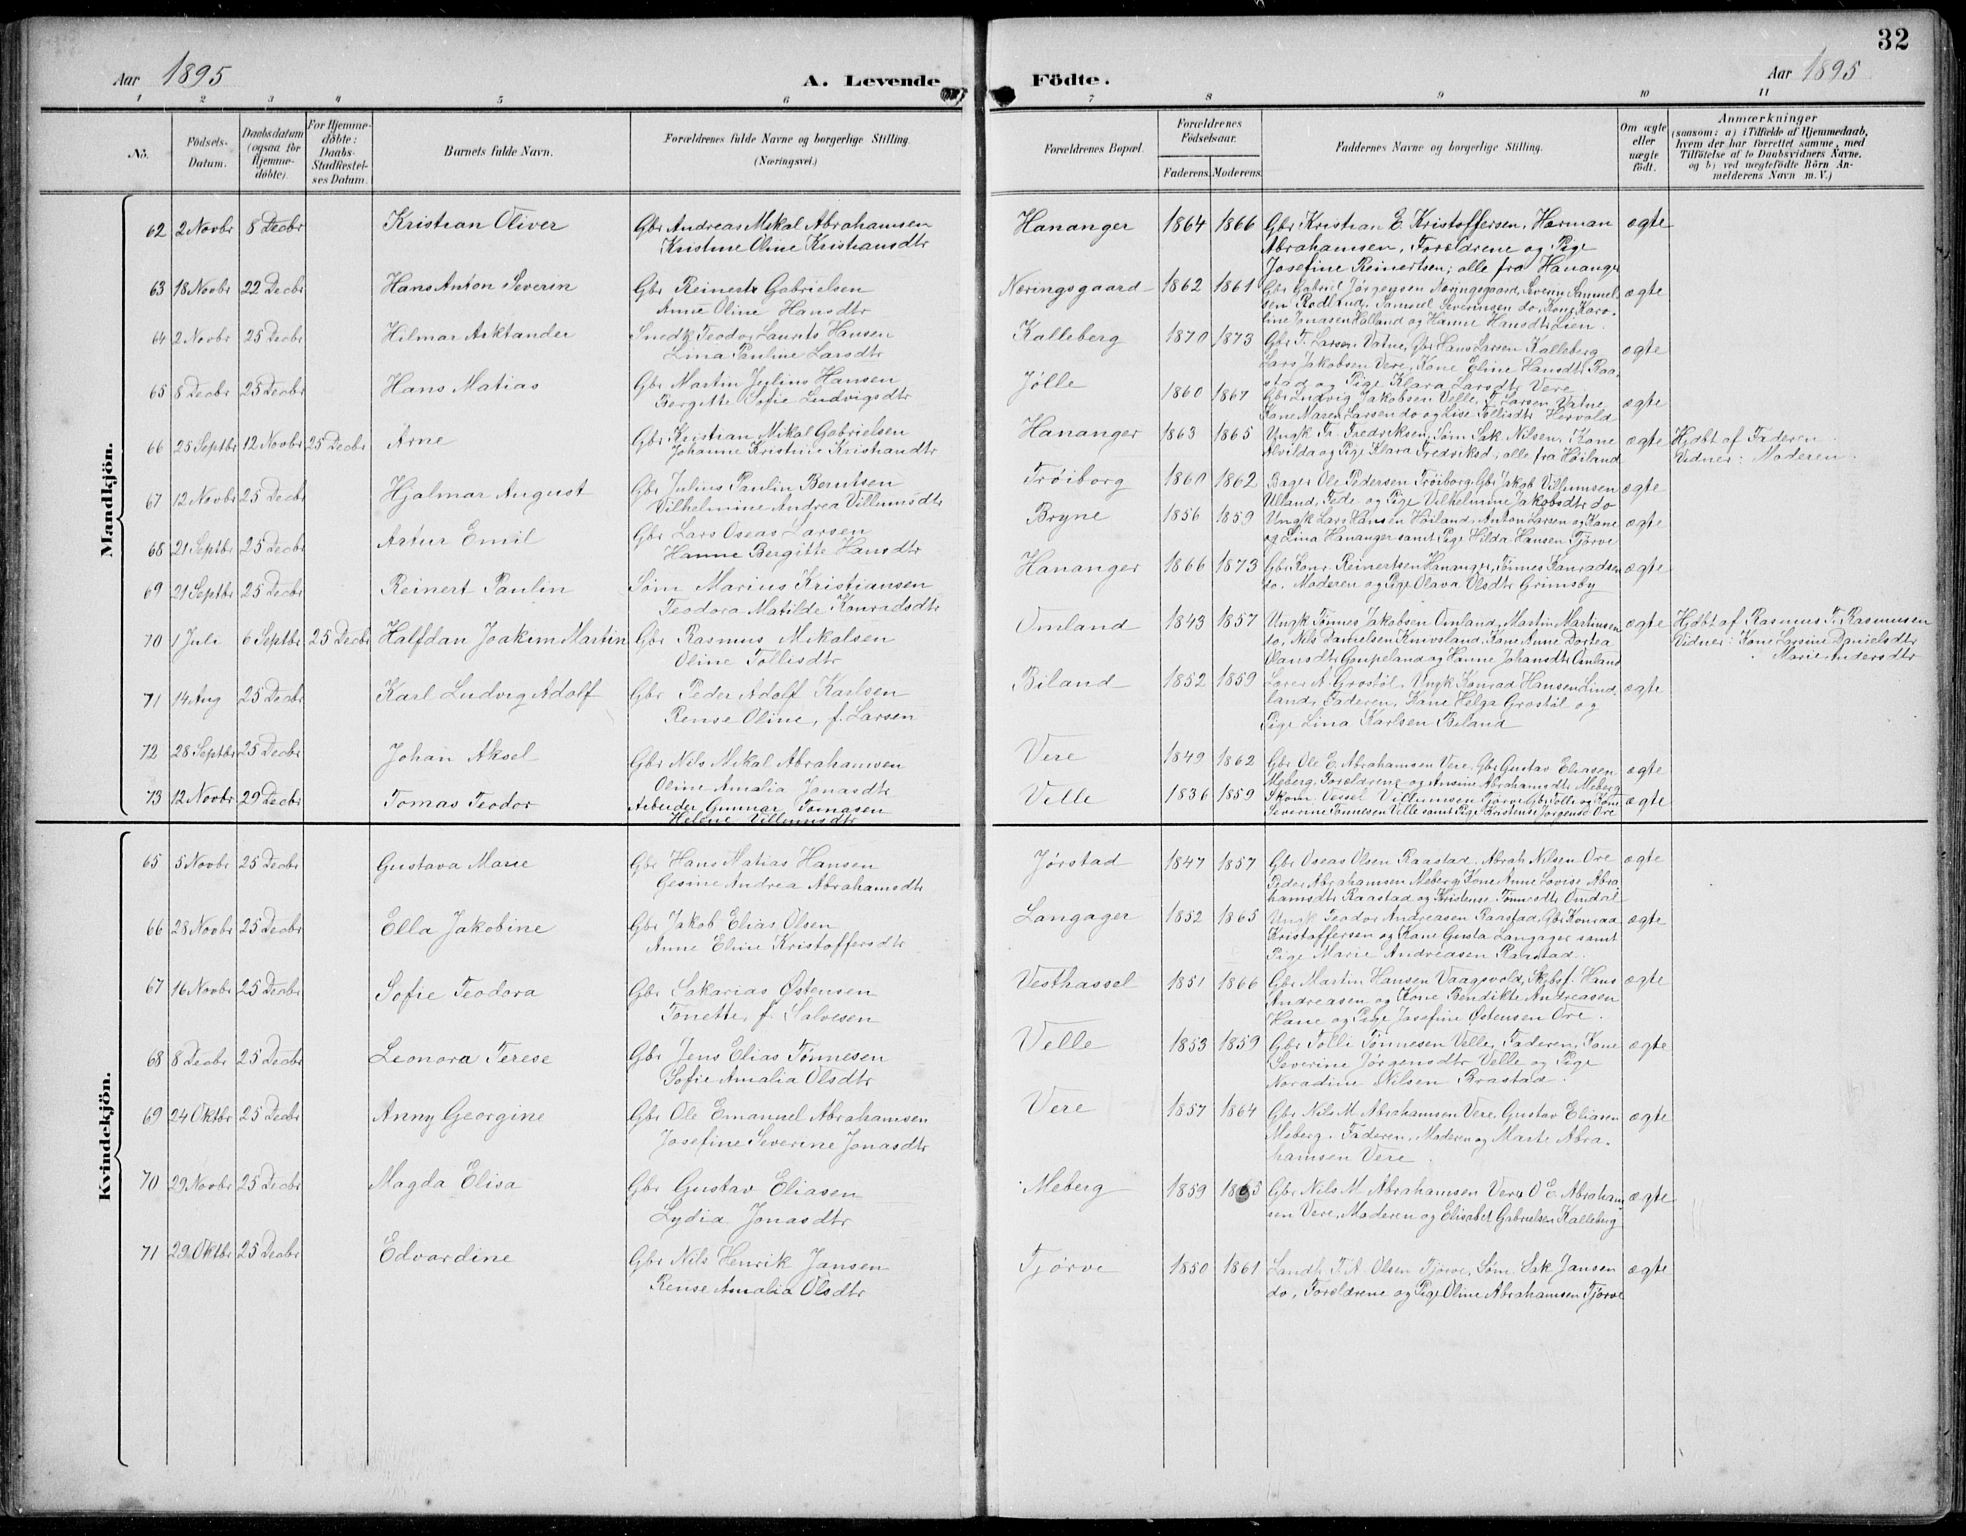 Aar 1895
A. Levende
Födte.
Aar 1895
32
1 2 3 4 5 6 7 8 9 10 11
No.
Födsels-Datum.
Daabsdatum (ogsaa for Hjemme-döbte).
For Hjemme-döbte: Daabs-Stadfæstelses Datum.
Barnets fulde Navn.
Forældrenes fulde Navne og borgerlige Stilling. (Næringsvei.)
Forældrenes Bopæl.
Forældrenes Födselsaar.
Faderens. Moderens.
Faddernes Navne og borgerlige Stilling.
Om ægte eller uægte født.
Anmærkninger
(saasom: a) i Tilfælde af Hjemmedaab, hvem der har forrettet samme, med Tilföielse af to Daabsvidners Navne, og b) ved uægtefödte Börn Anmelderens Navn m. V.)
Mandkjön.
62 2 Novbr 8 Decbr Kristian Oliver Gbr Andreas Mikal Abrahamsen Hananger 1864 1866 Gbr Kristian E. Kristoffersen, Herman ægte
Kristine Oline Kristiansdtr Abrahamsen, Forældrene og Pige
Josefine Reinertsen; alle fra Hananger
63 18 Novbr 22 Decbr Hans Anton Severin Gbr Reinert Gabrielsen Næringsgaard 1862 1861 Gbr Gabriel Jørgensen Næringsgaard, Severin Samuel- ægte
Anne Oline Hansdtr sen Rødland, Samuel Severinsen do, Kone Karo-
line Jonasen Halland og Hanne Hansdtr Lien.
64 2 Novbr 25 Decbr Hilmar Arktander Smed Teodor Laurits Hansen Kalleberg 1870 1873 Gbr T. Larsen Vatne, Gbr Hans Larsen Kalleberg ægte
Lina Pauline Larsdtr Lars Jakobsen Vere, Kone Eline Hansdtr Raa-
stad og Pige Klara Larsdtr Vere
65 8 Decbr 25 Decbr Hans Matias Gbr Martin Julius Hansen Jølle 1860 1867 Gbr Ludvig Jakobsen Velle, T. Larsen Vatne ægte
Bergitte Sofie Ludvigsdtr Kone Maren Larsen do og Lise Tollisdtr Hervold
66 25 Septbr 12 Novbr 25 Decbr Arne Gbr Kristian Mikal Gabrielsen Hananger 1863 1865 Ungk Fr. Fredriksen, Søm Sak. Nilsen, Kone ægte Hjdbt af Faderen.
Johanne Kristine Kristiandtr Alvilda og Pige Klara Fredriksd, alle fra Høiland Vidner: Moderen.
67 12 Novbr 25 Decbr Hjalmar August Gbr Julius Paulin Berntsen Trøiborg 1860 1862 Bager Ole Pedersen Trøiborg, Gbr Jakob Villumsen ægte
Vilhelmine Andrea Villumsdtr Ulland, Fade og Pige Vilhelmine Jakobsdtr do
68 21 Septbr 25 Decbr Artur Emil Gbr Lars Oseas Larsen Bryne 1856 1859 Ungk Lars Hansen Høiland, Anton Larsen og Kone ægte
Hanne Bergitte Hansdtr og Lina Hananger samt Pige Hilda Hansen Tjørve
69 21 Septbr 25 Decbr Reinert Paulin Søm Marius Kristiansen Hananger 1866 1873 Gbr Konr Reinertsen Hananger, Tønnes Konradsen ægte
Teodora Matilde Konradsdtr do. Moderen og Pige Olava Olsdtr Grimsby
70 1 Juli 6 Septbr 25 Decbr Halfdan Joakim Martin Gbr Rasmus Mikalsen Omland 1843 1857 Ungk Tønnes Jakobsen Omland, Martin Martinsen ægte Hjdbt af Rasmus T. Rasmussen
Oline Tollisdtr do, Nils Danielsen Knivsland, Kone Anne Dortea Vidner: Kone Larsine Danielsdtr
Olausdtr Goupeland og Hanne Johansdtr Omland Marie Andersdtr
71 14 Aug 25 Decbr Karl Ludvig Adolf Gbr Peder Adolf Karlsen Biland 1852 1859 Lorer A. Grostøl, Ungk Konrad Hansen Lind- ægte
Rense Oline, f. Larsen land, Faderen, Kone Helga Grostøl og
Pige Lina Karlsen Biland
72 28 Septbr 25 Decbr Johan Aksel Gbr Nils Mikal Abrahamsen Vere 1849 1862 Gbr Ole E. Abrahamsen Vere, Gbr Gustav Eliasen ægte
Oline Amalia Jonasdtr Meberg, Forældrene og Ansine Abrahamsdtr Meberg
73 12 Novbr 29 Decbr Tomas Teodor Arbeider Gunnar Tomasen Velle 1836 1859 Skom. Vessel Villumsen Tjørve, Gbr Tolle og Kone ægte
Helene Villumsdtr Severine Tønnesen Velle samt Pige Kristense Jørgensd Ore
Kvindekjön.
65 5 Novbr 25 Decbr Gustava Marie Gbr Hans Matias Hansen Jørstad 1847 1857 Gbr Oseas Olsen Raastad, Abrah Nilsen Ore ægte
Gesine Andrea Abrahamsdtr Peder Abrahamsen Meberg, Kone Anne Lovise Abra-
hamsdtr Raastad og Kristense Tønnesdtr Omdal
66 28 Novbr 25 Decbr Ella Jakobine Gbr Jakob Elias Olsen Langager 1852 1865 Ungk Teodor Andreasen Raastad, Gbr Konrad ægte
Anne Eline Kristoffersdtr Kristoffersen og Kone Gusta Langager samt
Pige Marie Andreasen Raastad.
67 16 Novbr 25 Decbr Sofie Teodora Gbr Sakarias Østensen Vesthassel 1851 1866 Gbr Martin Hansen Vaagsvold, Skibsf. Hans ægte
Tonette, f. Salvesen Andreasen og Kone Bendikte Andreasen
Hane og Pige Josefine Østensen Ore.
68 8 Decbr 25 Decbr Leonora Terese Gbr Jens Elias Tønnesen Velle 1853 1859 Gbr Tolli Tønnesen Velle, Faderen, Kone ægte
Sofie Amalia Olsdtr Severine Jørgensdtr Velle og Pige
Noradine Nilsen Brastad.
69 24 Oktbr 25 Decbr Anny Georgine Gbr Ole Emanuel Abrahamsen Vere 1857 1864 Gbr Nils M Abrahamsen Vere, Gustav Eliasen ægte
Josefine Severine Jonasdtr Meberg. Faderen, Moderen og Marte Abra-
hamsen Vere.
70 29 Novbr 25 Decbr Magda Elisa Gbr Gustav Eliasen Meberg 1859 1865 Gbr Nils M Abrahamsen Vere, O E. Abraham- ægte
Lydia Jonasdtr sen Vere, Moderen og Elisabet Gabrielsen Kalleberg
71 29 Oktbr 25 Decbr Edvardine Gbr Nils Henrik Jansen Tjørve 1850 1861 Landh. T. A. Olsen Tjørve, Søm. Sak Jansen ægte
Rense Amalia Olsdtr do, Forældrene og Pige Oline Abrahamsen Tjørve